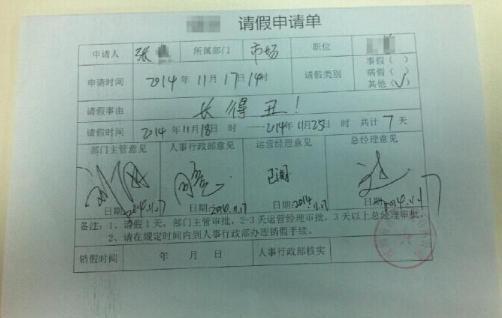 请假申请单
申请人 张 所属部门 市场 职位
申请时间 2014年11月17日14时 请假类别 事假( ) 病假( ) 其他(✓)
请假事由 长得丑!
请假时间 2014年11月18日 时 —2014年11月25日 时 共计7天
部门主管意见 人事行政部意见 运营经理意见 总经理意见
日期:2014.11.17 日期:2014.11.17 日期:2014.11.17 日期:2014.11.17
备注:1、请假1天,部门主管审批,2-3天运营经理审批,3天以上总经理审批。
2、请在规定时间内到人事行政部办理销假手续。
销假时间 年 月 日 人事行政部核实